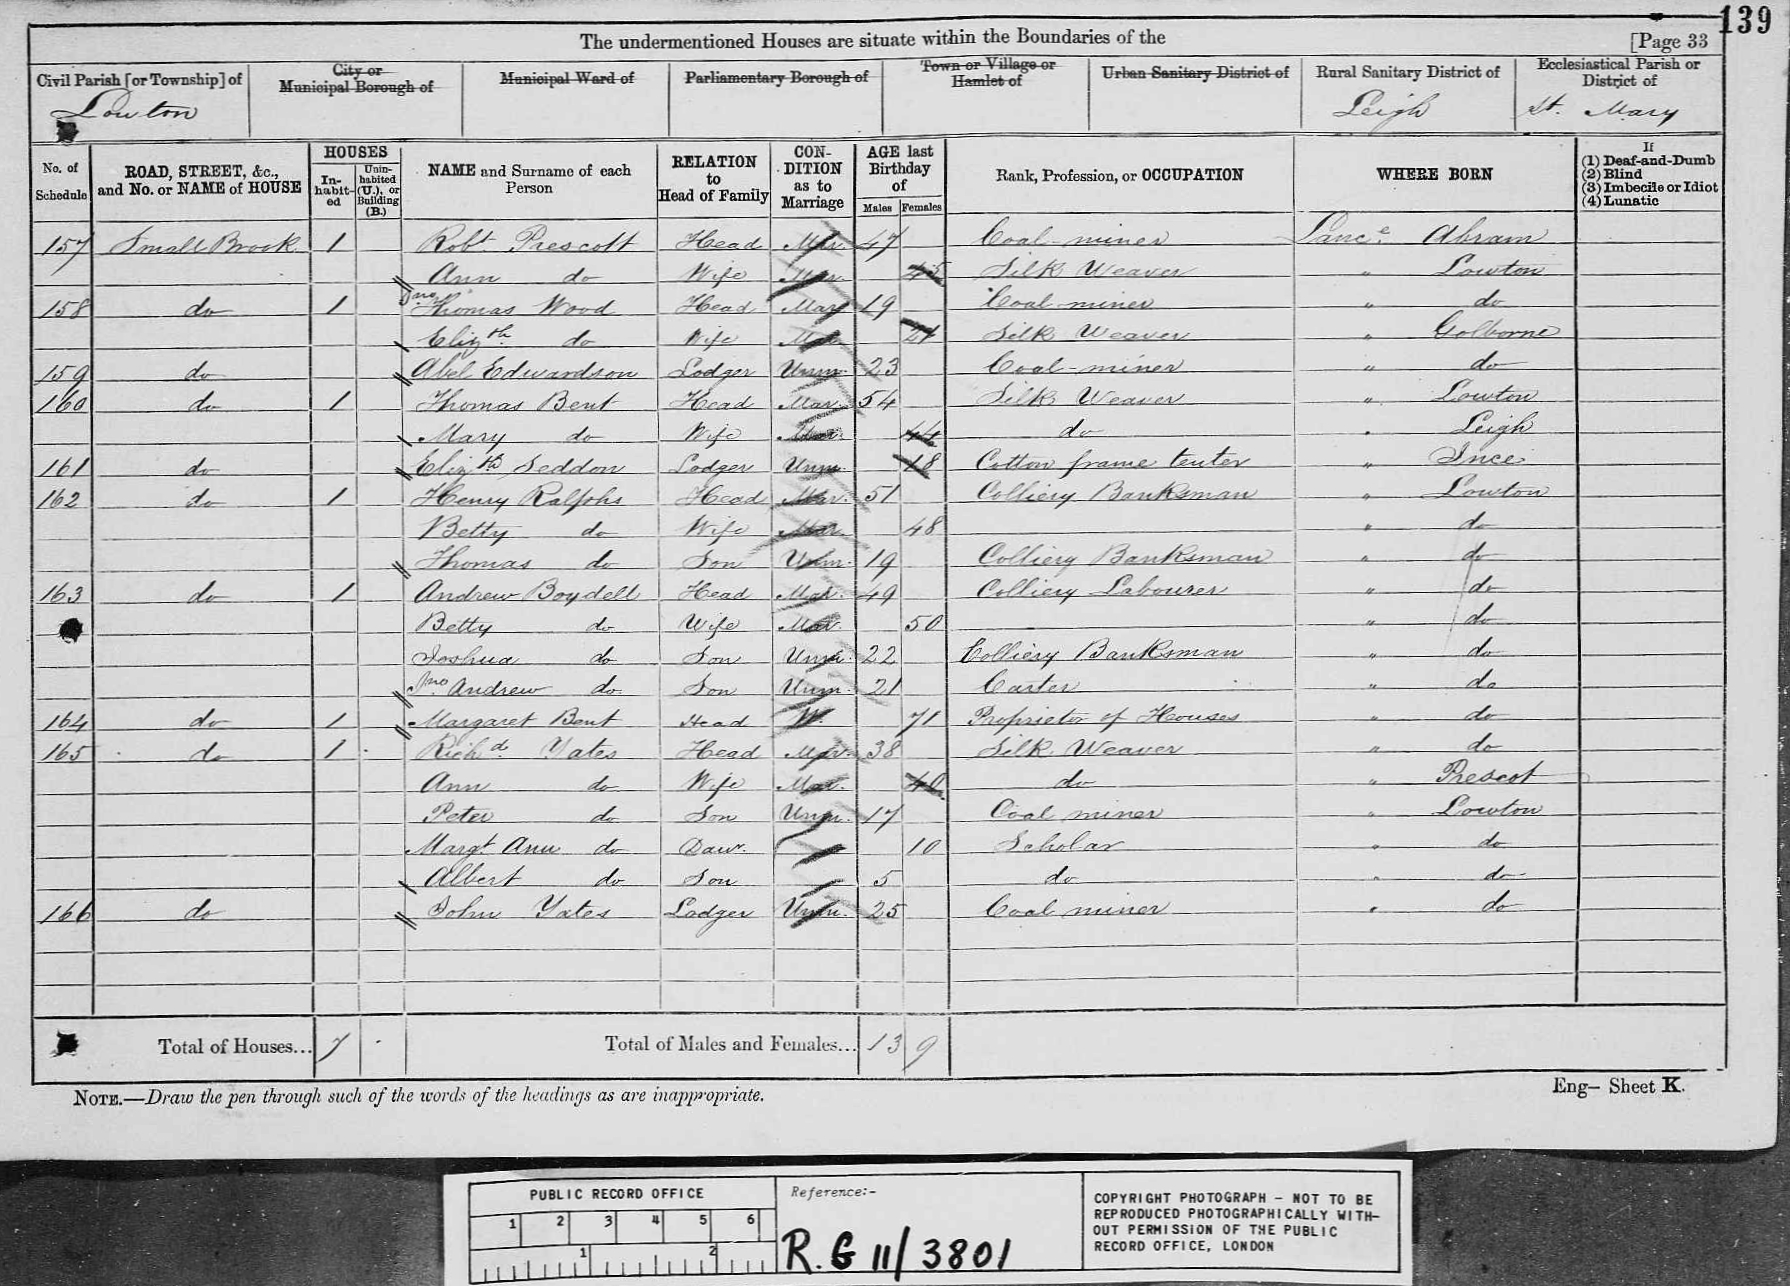 139
The undermentioned Houses are situate within the Boundaries of the [Page 33
Civil Parish [or Township] of City or Municipal Borough of Municipal Ward of Parliamentary Borough of Town or Village or Hamlet of Urban Sanitary District of Rural Sanitary District of Ecclesiastical Parish or District of
Lowton Leigh St. Mary
No. of Schedule ROAD, STREET, &c., and No. or NAME of HOUSE HOUSES Inhabited Uninhabited (U.), or Building (B.) NAME and Surname of each Person RELATION to Head of Family CONDITION as to Marriage AGE last Birthday of Males Females Rank, Profession, or OCCUPATION WHERE BORN If (1) Deaf-and-Dumb (2) Blind (3) Imbecile or Idiot (4) Lunatic
157 Small Brook 1 Robt Prescott Head Mar. 47 Coal-miner Lance. Abram
Ann do Wife Mar. 45 Silk Weaver " Lowton
158 do 1 Jno Thomas Wood Head Mar 19 Coal-miner " do
Elizth do Wife Mar 21 Silk Weaver " Golborne
159 do Abel Edwardson Lodger Unm. 23 Coal-miner " do
160 do 1 Thomas Bent Head Mar. 54 Silk Weaver " Lowton
Mary do Wife Mar. 44 do " Leigh
161 do Elizth Seddon Lodger Unm. 18 Cotton frame tenter " Ince
162 do 1 Henry Ralphs Head Mar. 51 Colliery Banksman " Lowton
Betty do Wife Mar. 48 " do
Thomas do Son Unm. 19 Colliery Banksman " do
163 do 1 Andrew Boydell Head Mar. 49 Colliery Labourer " do
Betty do Wife Mar. 50 " do
Joshua do Son Unm. 22 Colliery Banksman " do
Jno Andrew do Son Unm. 21 Carter " do
164 do 1 Margaret Bent Head W. 71 Proprietor of Houses " do
165 do 1 Richd. Yates Head Mar. 38 Silk Weaver " do
Ann do Wife Mar. 40 do " Prescot
Peter do Son Unm. 17 Coal miner " Lowton
Margt. Ann do Daur. 10 Scholar " do
Albert do Son 5 do " do
166 do John Yates Lodger Unm. 25 Coal miner " do
Total of Houses... 7 Total of Males and Females... 13 9
NOTE.—Draw the pen through such of the words of the headings as are inappropriate. Eng– Sheet K.
PUBLIC RECORD OFFICE
1 2 3 4 5 6
1 2
Reference:-
R.G 11/3801
COPYRIGHT PHOTOGRAPH - NOT TO BE
REPRODUCED PHOTOGRAPHICALLY WITH-
OUT PERMISSION OF THE PUBLIC
RECORD OFFICE, LONDON